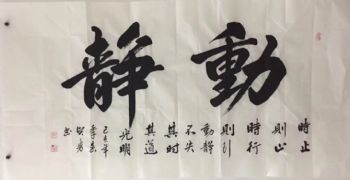 動靜
時止
則止
時行
則行
動靜
不失
其時
其道
光明
己亥年
季春
書